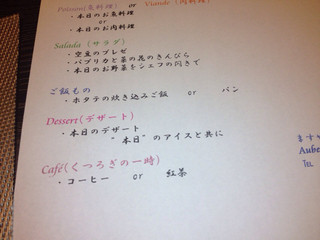 Poisson(魚料理) or Viande(肉料理)
・本日のお魚料理
or
・本日のお肉料理
Salada (サラダ)
・空豆のブレゼ
・パプリカと菜の花のきんぴら
・本日のお野菜をシェフの閃きで
ご飯もの
・ホタテの炊き込みご飯 or パン
Dessert(デザート)
・本日のデザート
"本日"のアイスと共に
Café(くつろぎの一時)
・コーヒー or 紅茶
ますや
Aube
TEL